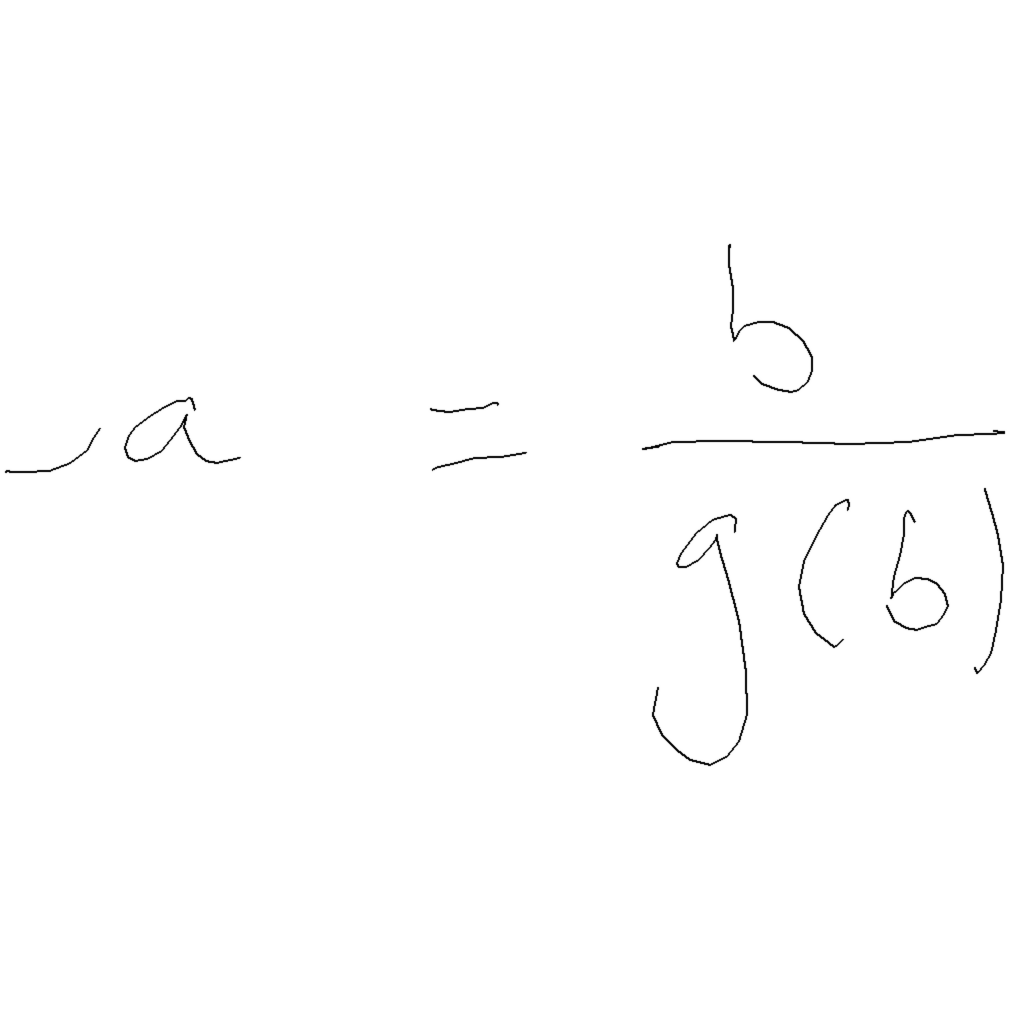 -a = \frac{b}{g(b)}